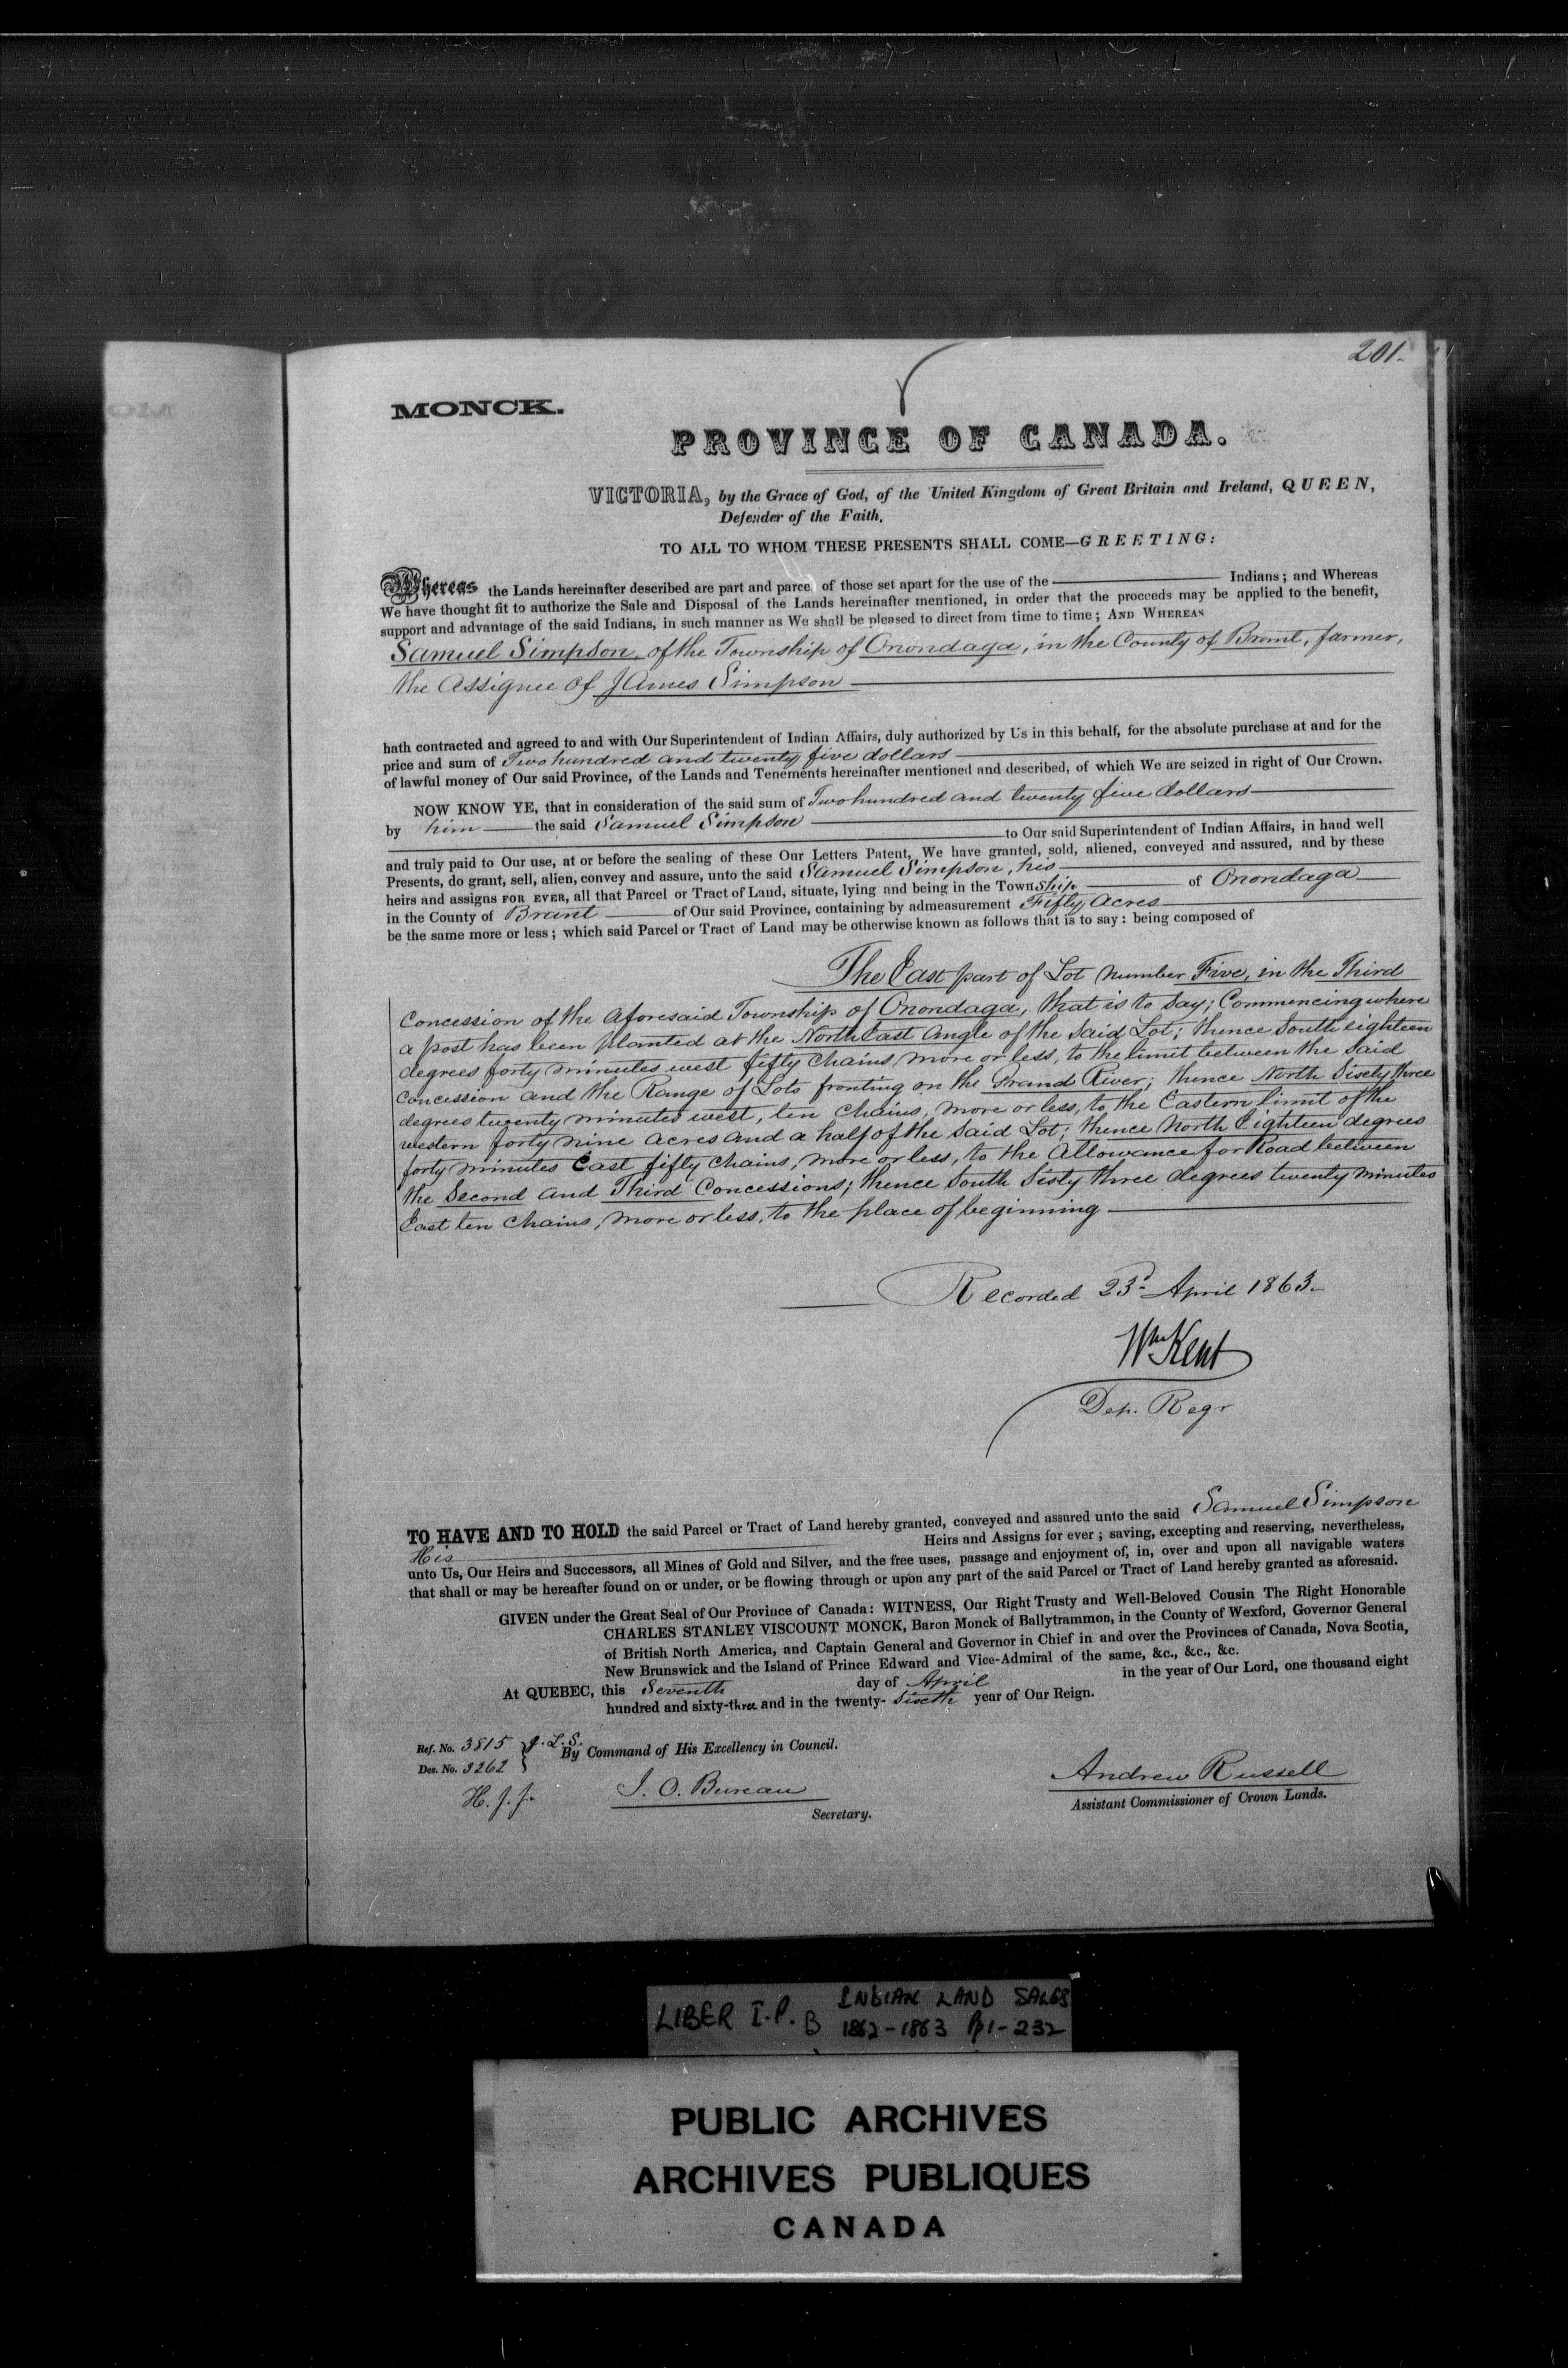 201.
MONCK.
PROVINCE OF CANADA.
VICTORIA, by the Grace of God, of the United Kingdom of Great Britain and Ireland, QUEEN,
Defender of the Faith.
TO ALL TO WHOM THESE PRESENTS SHALL COME—GREETING:
Whereas the Lands hereinafter described are part and parcel of those set apart for the use of the Indians; and Whereas
We have thought fit to authorize the Sale and Disposal of the Lands hereinafter mentioned, in order that the proceeds may be applied to the benefit,
support and advantage of the said Indians, in such manner as We shall be pleased to direct from time to time; AND WHEREAS
Samuel Simpson, of the Township of Onondaga, in the County of Brant, farmer,
the Assignee of James Simpson
hath contracted and agreed to and with Our Superintendent of Indian Affairs, duly authorized by Us in this behalf, for the absolute purchase at and for the
price and sum of Two hundred and twenty five dollars
of lawful money of Our said Province, of the Lands and Tenements hereinafter mentioned and described, of which We are seized in right of Our Crown.
NOW KNOW YE, that in consideration of the said sum of Two hundred and twenty five dollars
by him the said Samuel Simpson
to Our said Superintendent of Indian Affairs, in hand well
and truly paid to Our use, at or before the sealing of these Our Letters Patent, We have granted, sold, aliened, conveyed and assured, and by these
Presents, do grant, sell, alien, convey and assure, unto the said Samuel Simpson, his
heirs and assigns FOR EVER, all that Parcel or Tract of Land, situate, lying and being in the Township of Onondaga
in the County of Brant of Our said Province, containing by admeasurement Fifty Acres
be the same more or less; which said Parcel or Tract of Land may be otherwise known as follows that is to say: being composed of
The East part of Lot number Five, in the Third
Concession of the aforesaid Township of Onondaga, that is to say; Commencing where
a post has been planted at the North East Angle of the said Lot; thence South eighteen
degrees forty minutes west fifty chains, more or less, to the limit between the said
Concession and the Range of Lots fronting on the Grand River; thence North Sixty three
degrees twenty minutes west, ten chains, more or less, to the Eastern limit of the
western forty nine acres and a half of the said Lot; thence North Eighteen degrees
forty minutes East fifty chains, more or less, to the Allowance for Road between
the Second and Third Concessions; thence South Sixty three degrees twenty minutes
East ten chains, more or less, to the place of beginning
Recorded 23d April 1863.
Wm Kent
Dep. Regr
TO HAVE AND TO HOLD the said Parcel or Tract of Land hereby granted, conveyed and assured unto the said Samuel Simpson
His Heirs and Assigns for ever; saving, excepting and reserving, nevertheless,
unto Us, Our Heirs and Successors, all Mines of Gold and Silver, and the free uses, passage and enjoyment of, in, over and upon all navigable waters
that shall or may be hereafter found on or under, or be flowing through or upon any part of the said Parcel or Tract of Land hereby granted as aforesaid.
GIVEN under the Great Seal of Our Province of Canada: WITNESS, Our Right Trusty and Well-Beloved Cousin The Right Honorable
CHARLES STANLEY VISCOUNT MONCK, Baron Monck of Ballytrammon, in the County of Wexford, Governor General
of British North America, and Captain General and Governor in Chief in and over the Provinces of Canada, Nova Scotia,
New Brunswick and the Island of Prince Edward and Vice-Admiral of the same, &c., &c., &c.
At QUEBEC, this Seventh day of April in the year of Our Lord, one thousand eight
hundred and sixty-three and in the twenty-sixth year of Our Reign.
Ref. No. 3815 J. L. S.
By Command of His Excellency in Council.
Des. No. 3262
H. J. J.
J. O. Bureau
Secretary.
Andrew Russell
Assistant Commissioner of Crown Lands.
LIBER I.P. B INDIAN LAND SALES
1862-1863 Pp 1-232
PUBLIC ARCHIVES
ARCHIVES PUBLIQUES
CANADA